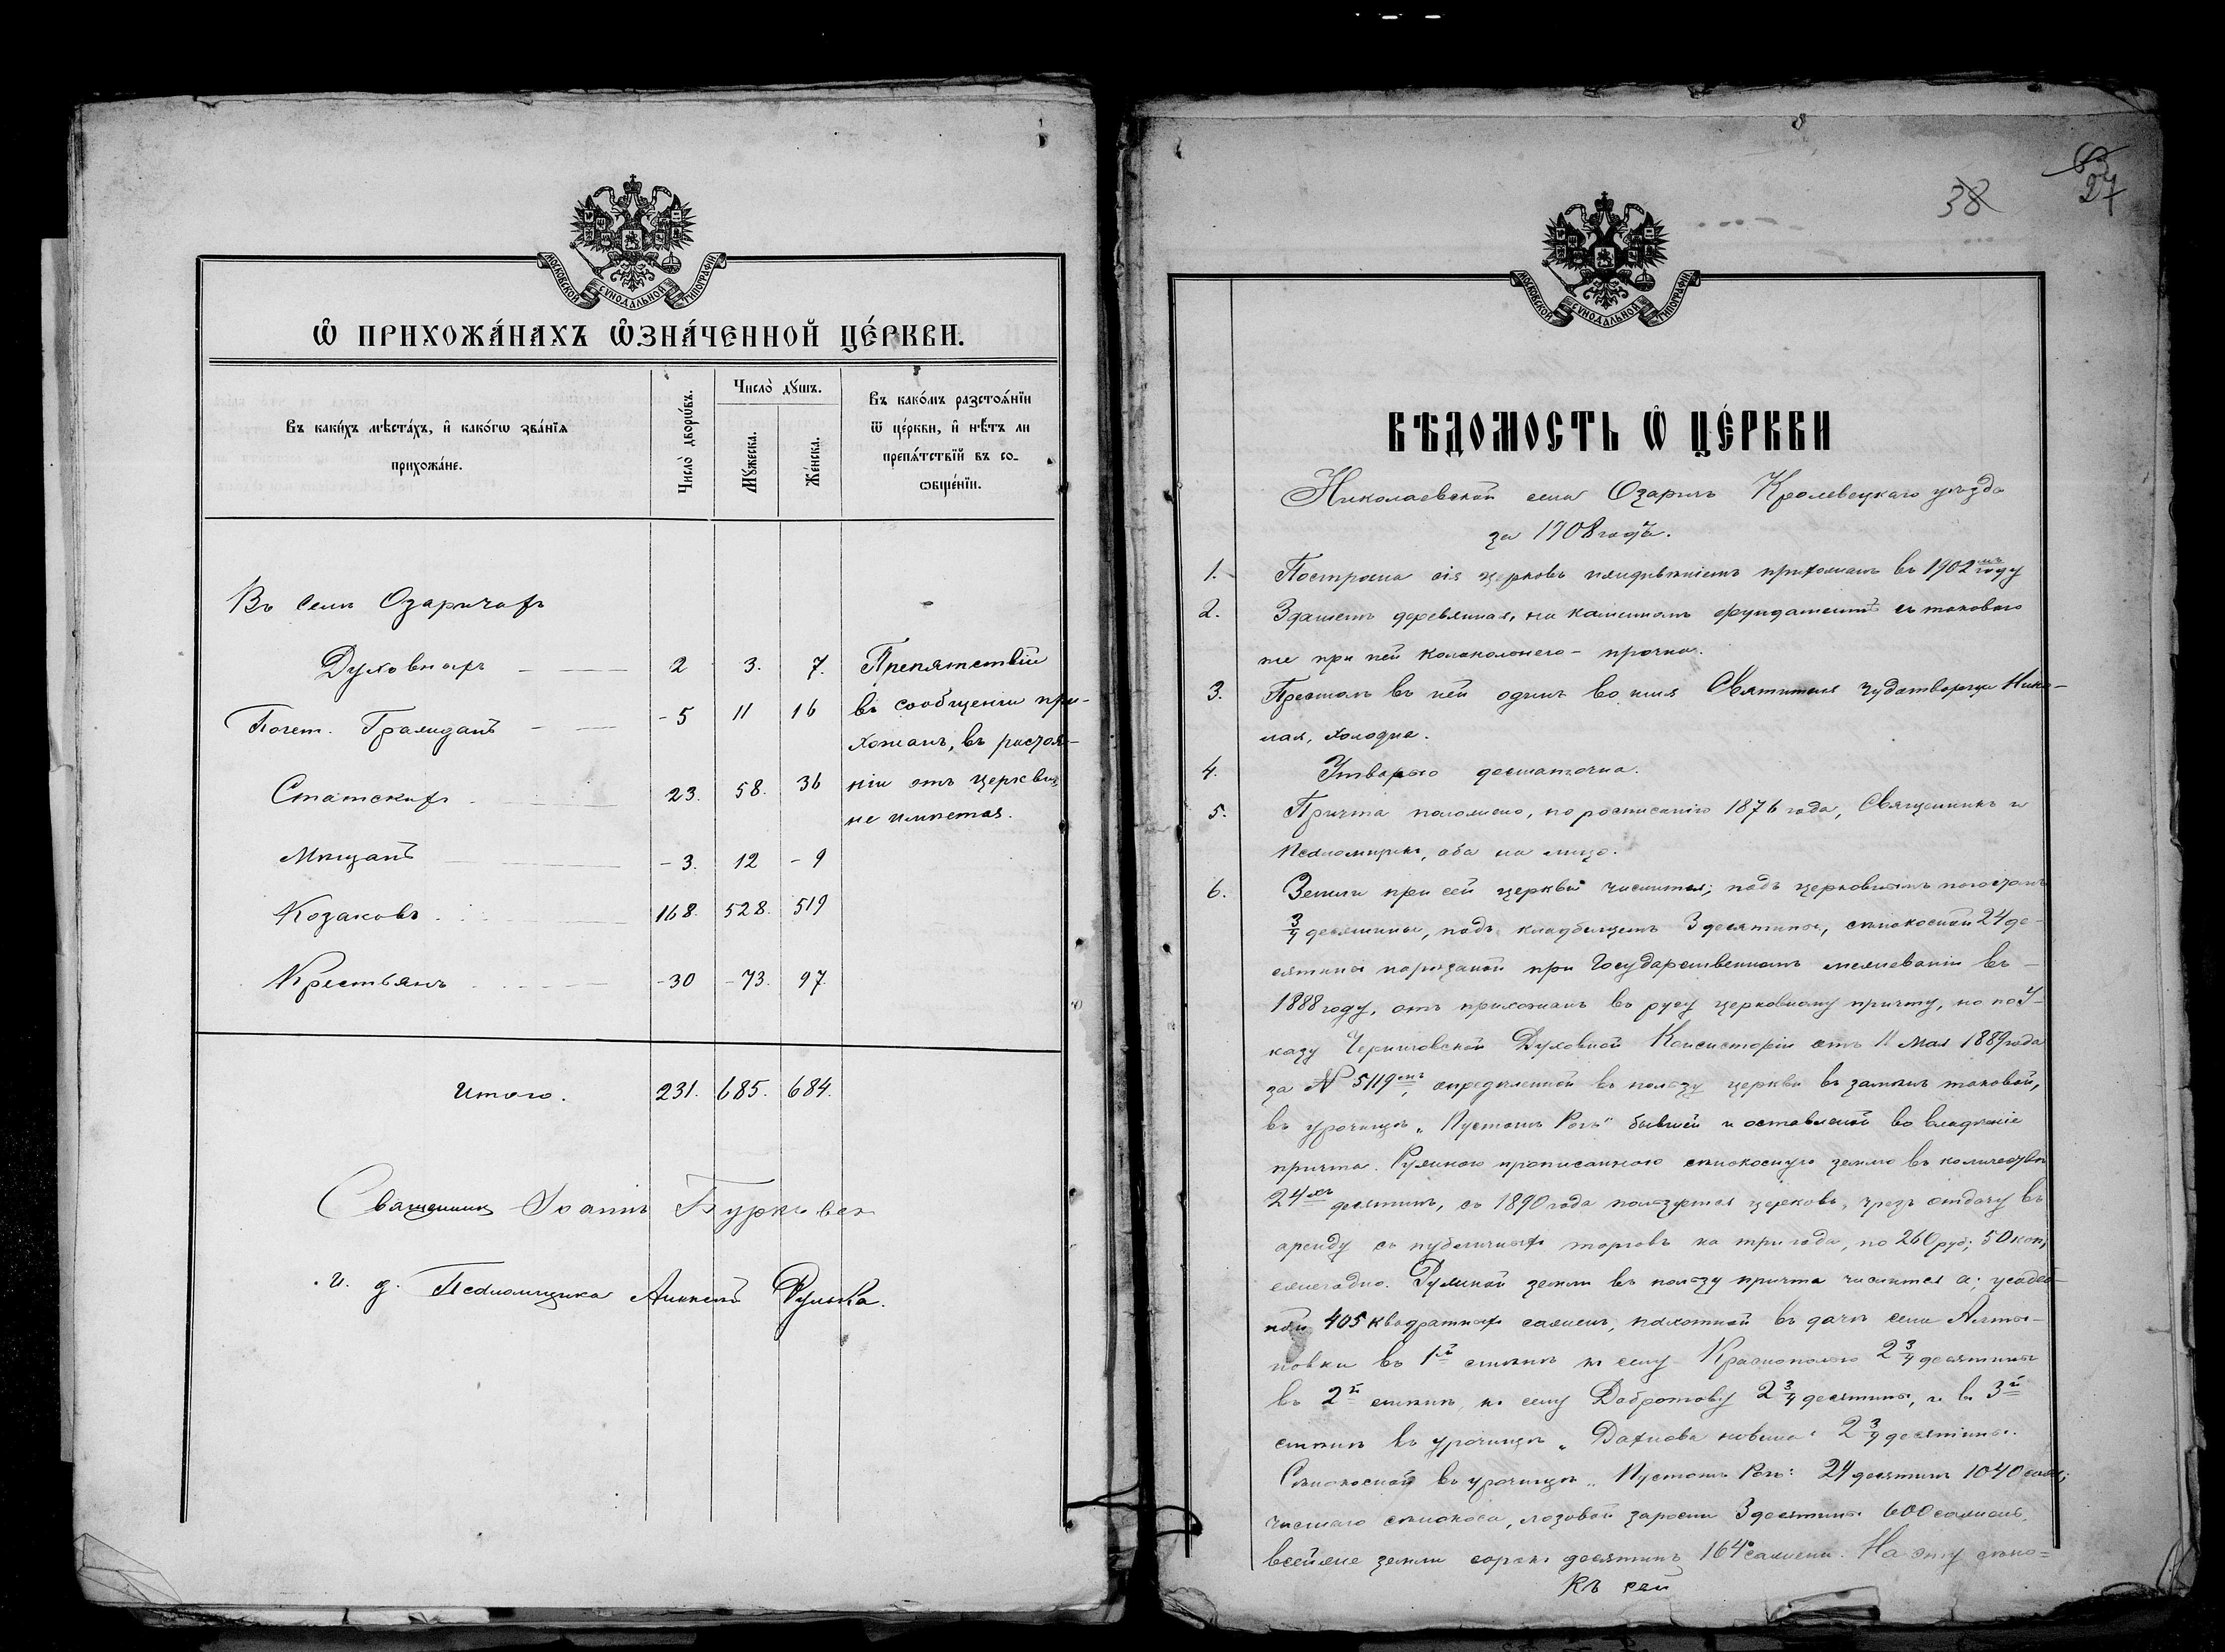 МОСКОВСКОЙ СѴНОДАЛЬНОЙ ТИПОГРАФІИ
Ѡ ПРИХОЖА́НАХЪ Ѡ҆ЗНА́ЧЕННОЙ ЦЕ́РКВИ.
Въ каки́хъ мѣста́хъ, и҆ како́гѡ зва́нїѧ
прихожа́не.
Число̀ дворѡ́въ.
Число̀ дꙋ́шъ.
Мꙋ́жеска.
Же́нска.
Въ како́мъ разстоѧ́нїи
ѿ це́ркви, и҆ нѣ́тъ ли
препѧ́тствїй въ со-
ѻбще́нїи.
Въ селѣ Озаричахъ
Духовныхъ 2 3. 7. Препятствій
Почет. Гражданъ - 5 11 16 въ сообщеніи при-
хожанъ, въ разстоя-
Статскихъ 23. 58. 36 ніи отъ церкви,
не имѣется.
Мѣщанъ - 3. 12 - 9
Козаковъ 168. 528. 519
Крестьянъ - 30 - 73. 97
Итого. 231. 685. 684.
Священникъ Іоаннъ
и. д. Псаломщика Алексѣй
8
63
38 27
МОСКОВСКОЙ СѴНОДАЛЬНОЙ ТИПОГРАФІИ
ВѢДОМОСТЬ Ѡ҆ ЦЕ́РКВИ
Николаевской села Озаричъ Кролевецкаго уѣзда
за 1908 годъ.
1. Построена сія церковь иждивеніемъ прихожанъ въ 1902мъ году
2. Зданіемъ деревянная, на каменномъ фундаментѣ съ таковою
же при ней колокольнею - прочна.
3. Престолъ въ ней одинъ во имя Святителя Чудотворца Нико-
лая, холодная.
4. Утварью достаточна.
5. Причта положено, по росписанію 1876 года, Священникъ и
Псаломщикъ, оба на лицо.
6. Земли при сей церкви числится; подъ церковнымъ погостомъ
3/4 десятины, подъ кладбищемъ 3 десятины, сѣнокосной 24 де-
сятины нарѣзаной при Государственномъ межеваніи въ
1888 году, отъ прихожанъ въ ругу церковному причту, но по У-
казу Черниговской Духовной Консисторіи отъ 11 Мая 1889 года
за № 5119мъ, опредѣленной въ пользу церкви въ замѣнъ таковой,
въ урочищѣ „Пустошъ Рогъ" бывшей и оставленой во владѣніе
причта. Ружною прописанною сѣнокосную землю въ количествѣ
24хъ десятинъ, съ 1890 года пользуется церковь, чрезъ отдачу въ
аренду съ публичныхъ торговъ на три года, по 260 руб; 50 коп;
ежегодно. Ружной земли въ пользу причта числится а; усадеб-
ной 405 квадратныхъ сажень, пахотной въ дачѣ села Алты-
новки въ 1й смѣнѣ къ селу Краснополью 2 3/4 десятины
въ 2й смѣнѣ, къ селу Добротову 2 3/4 десятины, и въ 3й
смѣнѣ въ урочищѣ „ новина" 2 3/4 десятины.
Сѣнокосной въ урочищѣ „Пустошъ Рогъ: 24 десятины 1040 саж;
чистаго сѣнокоса, лозовой заросли 3 десятины 600 сажень,
всей же земли сорокъ десятинъ 164 сажени. На эту сѣно=
Къ сей